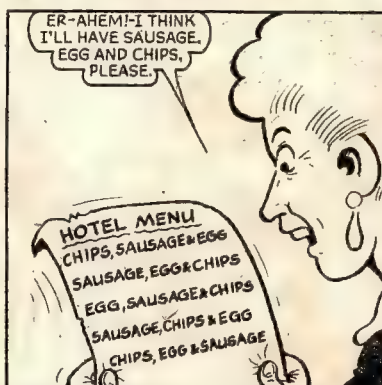 ER-AHEM!-I THINK
I'LL HAVE SAUSAGE,
EGG AND CHIPS,
PLEASE.
HOTEL MENU
CHIPS, SAUSAGE & EGG
SAUSAGE, EGG & CHIPS
EGG, SAUSAGE & CHIPS
SAUSAGE, CHIPS & EGG
CHIPS, EGG & SAUSAGE